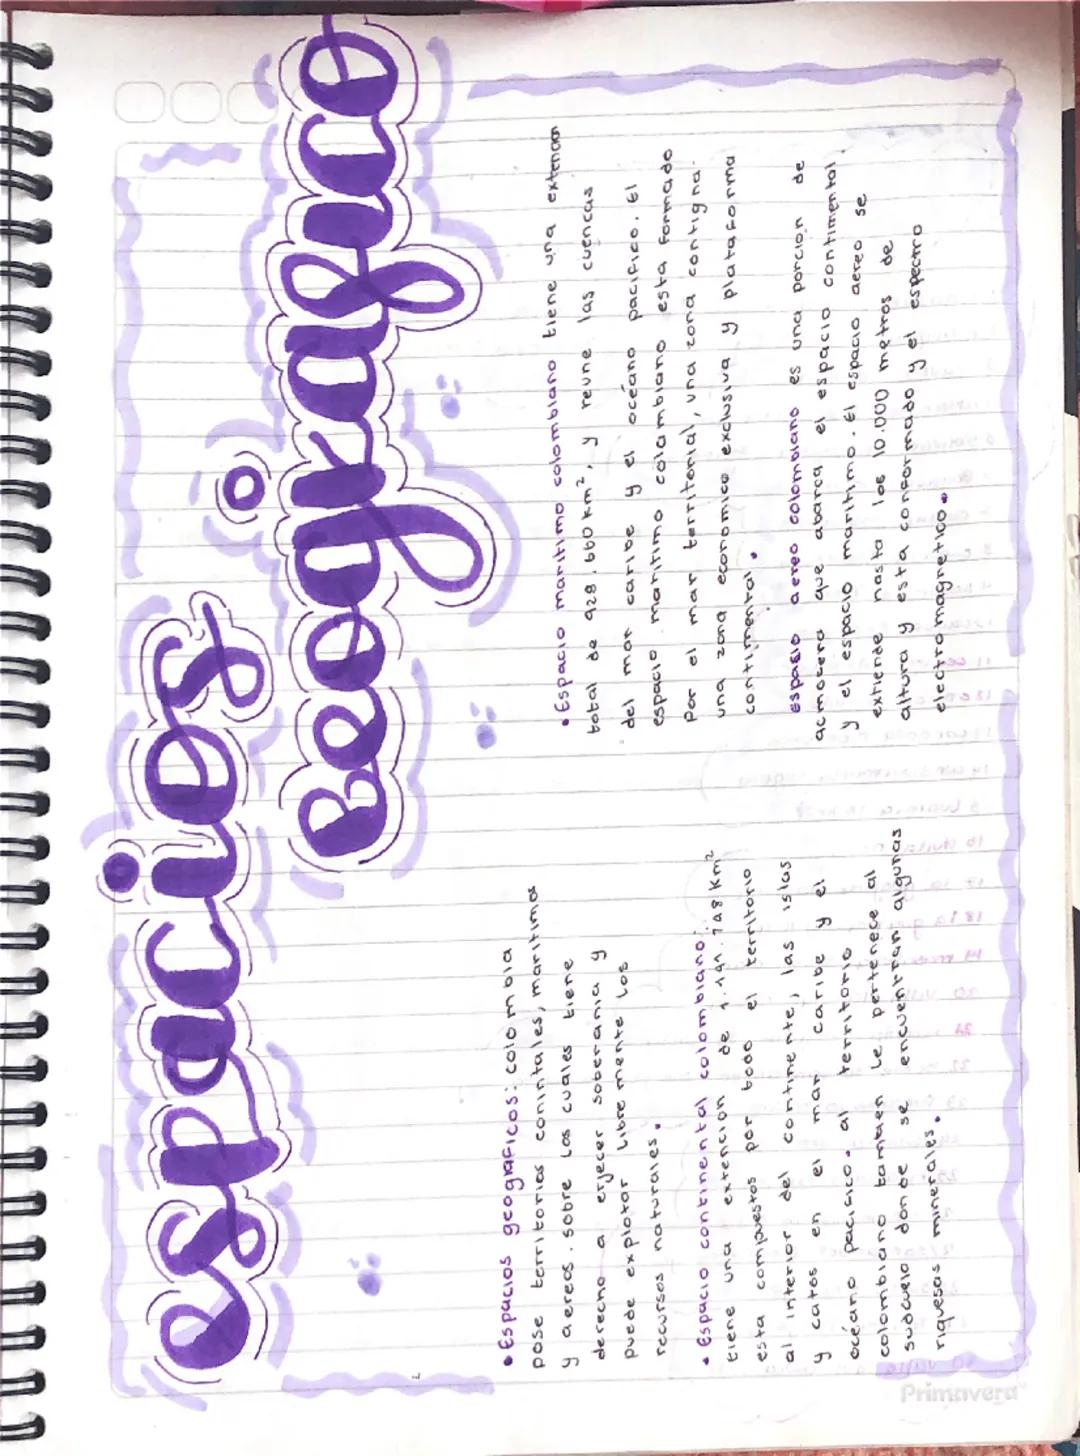 espacios
geografico
• Espacios geograficos: colombia
pose territorios conintales, maritimos
y aereos. sobre los cuales tiene
derecho a erjecer soberania y
puede explotar libremente los
recursos naturales.
• Espacio continental colombiano:
tiene una extencion de 1.141.748 Km²
esta compuestos por todo el territorio
al interior del continente, las islas
y catos en el mar caribe y el
océano pacicico. al territorio
colombiano tambien le pertenece al
subcuelo donde se encuentran algunas
riquesas minerales.
• Espacio maritimo colombiano tiene una extencion
total de 928.660 km², y reune las cuencas
del mar caribe y el océano pacifico. El
espacio maritimo colambiano esta formado
por el mar territorial, una zona contigna.
una zona economice exclusiva y plataforma
contimental.
espasio aereo colombiano es una porcion de
acmocera que abarca el espacio contimental
y el espacio maritimo. El espacio aereo se
extiende hasta los 10.000 metros de
altura y esta conformado y el espectro
electromagnetico.
Primavera